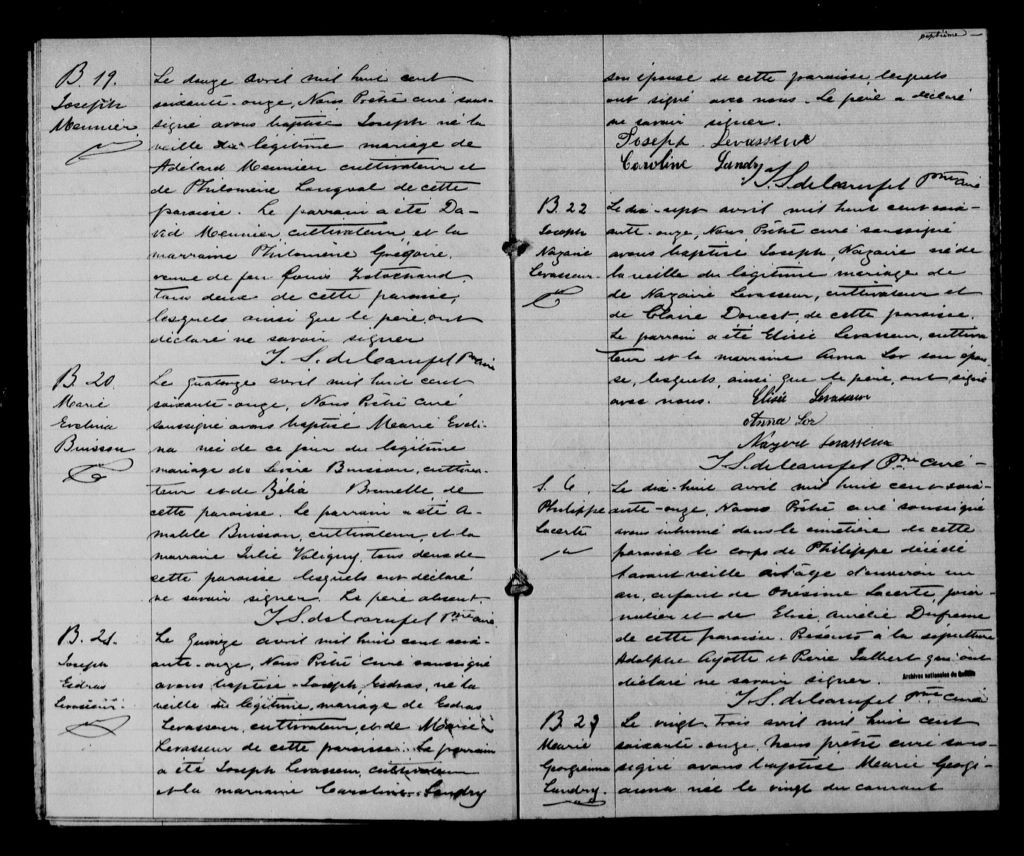 B. 19.
Joseph
Meunier
Le douze avril mil huit cent
soixante-onze, Nous Prêtre curé sous-
signé avons baptisé Joseph né la
veille du légitime mariage de
Adélard Meunier cultivateur et
de Philomène Langual de cette
paroisse. Le parrain a été Da-
vid Meunier cultivateur, et la
marraine Philomène Grégoire,
veuve de feu Louis
tous deux de cette paroisse,
lesquels ainsi que le père, ont
déclaré ne savoir signer
J. S. de Carufel Ptre curé
B. 20.
Marie
Evelina
Buisson
Le quatorze avril mil huit cent
soixante-onze, Nous Prêtre curé
soussigné avons baptisé Marie Eveli-
na née de ce jour du légitime
mariage de Buisson, cultiva-
teur et de Zélia Brunelle de
cette paroisse. Le parrain a été A-
mable Buisson, cultivateur, et la
marraine Julie Valigny, tous deux de
cette paroisse lesquels ont déclaré
ne savoir signer. Le père absent.
J. S. de Carufel Ptre curé
B. 21.
Joseph
Esdras
Levasseur.
Le quinze avril mil huit cent soix-
ante-onze, Nous Prêtre curé soussigné
avons baptisé Joseph, Esdras, né la
veille du légitime, mariage de Esdras
Levasseur, cultivateur, et de Marie
Levasseur de cette paroisse. Le parrain
a été Joseph Levasseur, cultivateur
et la marraine Caroline Landry
septième
son épouse de cette paroisse, lesquels
ont signé avec nous. Le père a déclaré
ne savoir signer.
Joseph Levasseur
Caroline Landry
J. S. de Carufel Ptre curé
B. 22
Joseph
Nazaire
Levasseur.
Le dix-sept avril mil huit cent soix-
ante-onze, Nous Prêtre curé soussigné
avons baptisé Joseph, Nazaire né de
la veille du légitime mariage de
de Nazaire Levasseur, cultivateur et
de Claire Doucet, de cette paroisse.
Le parrain a été Elisée Levasseur, cultiva-
teur et la marraine Anna Lor son épou-
se, lesquels, ainsi que le père, ont signé
avec nous. Elisée Levasseur
Anna Lor
Levasseur
J. S. de Carufel Ptre curé
S. 6.
Philippe
Lacerte
Le dix-huit avril mil huit cent soix-
ante-onze, Nous Prêtre curé soussigné
avons inhumé dans le cimetière de cette
paroisse le corps de Philippe décédé
l'avant veille à l'âge d'environ un
an, enfant de Onésime Lacerte, jour-
nalier et de Elise, Aurélie Dufresne
de cette paroisse. Présents à la sépulture
Adolphe Ayotte et Pierre Jalbert qui ont
déclaré ne savoir signer.
Archives nationales du Québec
J. S. de Carufel Ptre curé
B 23
Marie
Georgianna
Landry.
Le vingt-trois avril mil huit cent
soixante-onze, Nous prêtre curé sous-
signé avons baptisé Marie Georgi-
anna née le vingt du courant